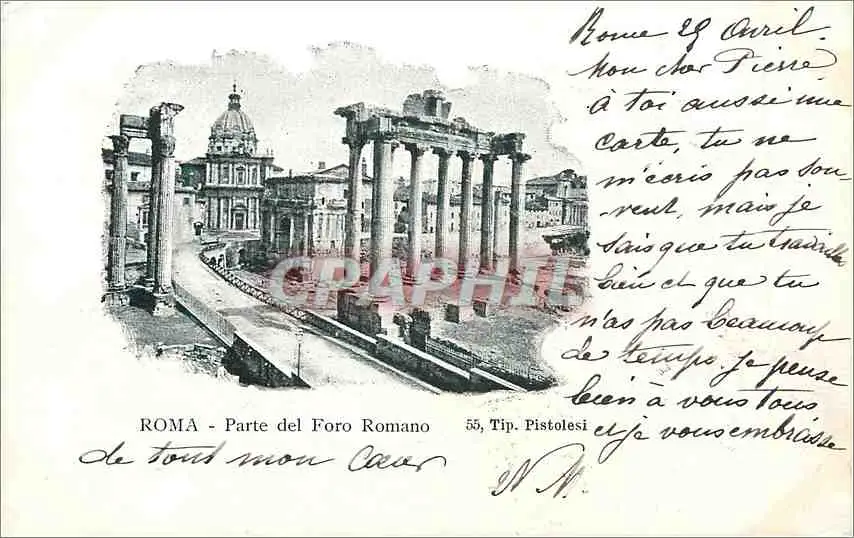 Rome 29 Avril.
Mon cher Pierre
à toi aussi une
carte, tu ne
m'écris pas sou-
-vent, mais je
sais que tu travailles
bien et que tu
n'as pas beaucoup
de temps. je pense
bien à vous tous
et je vous embrasse
de tout mon Cœur
N M.
ROMA - Parte del Foro Romano
55, Tip. Pistolesi
CPARAPHIL